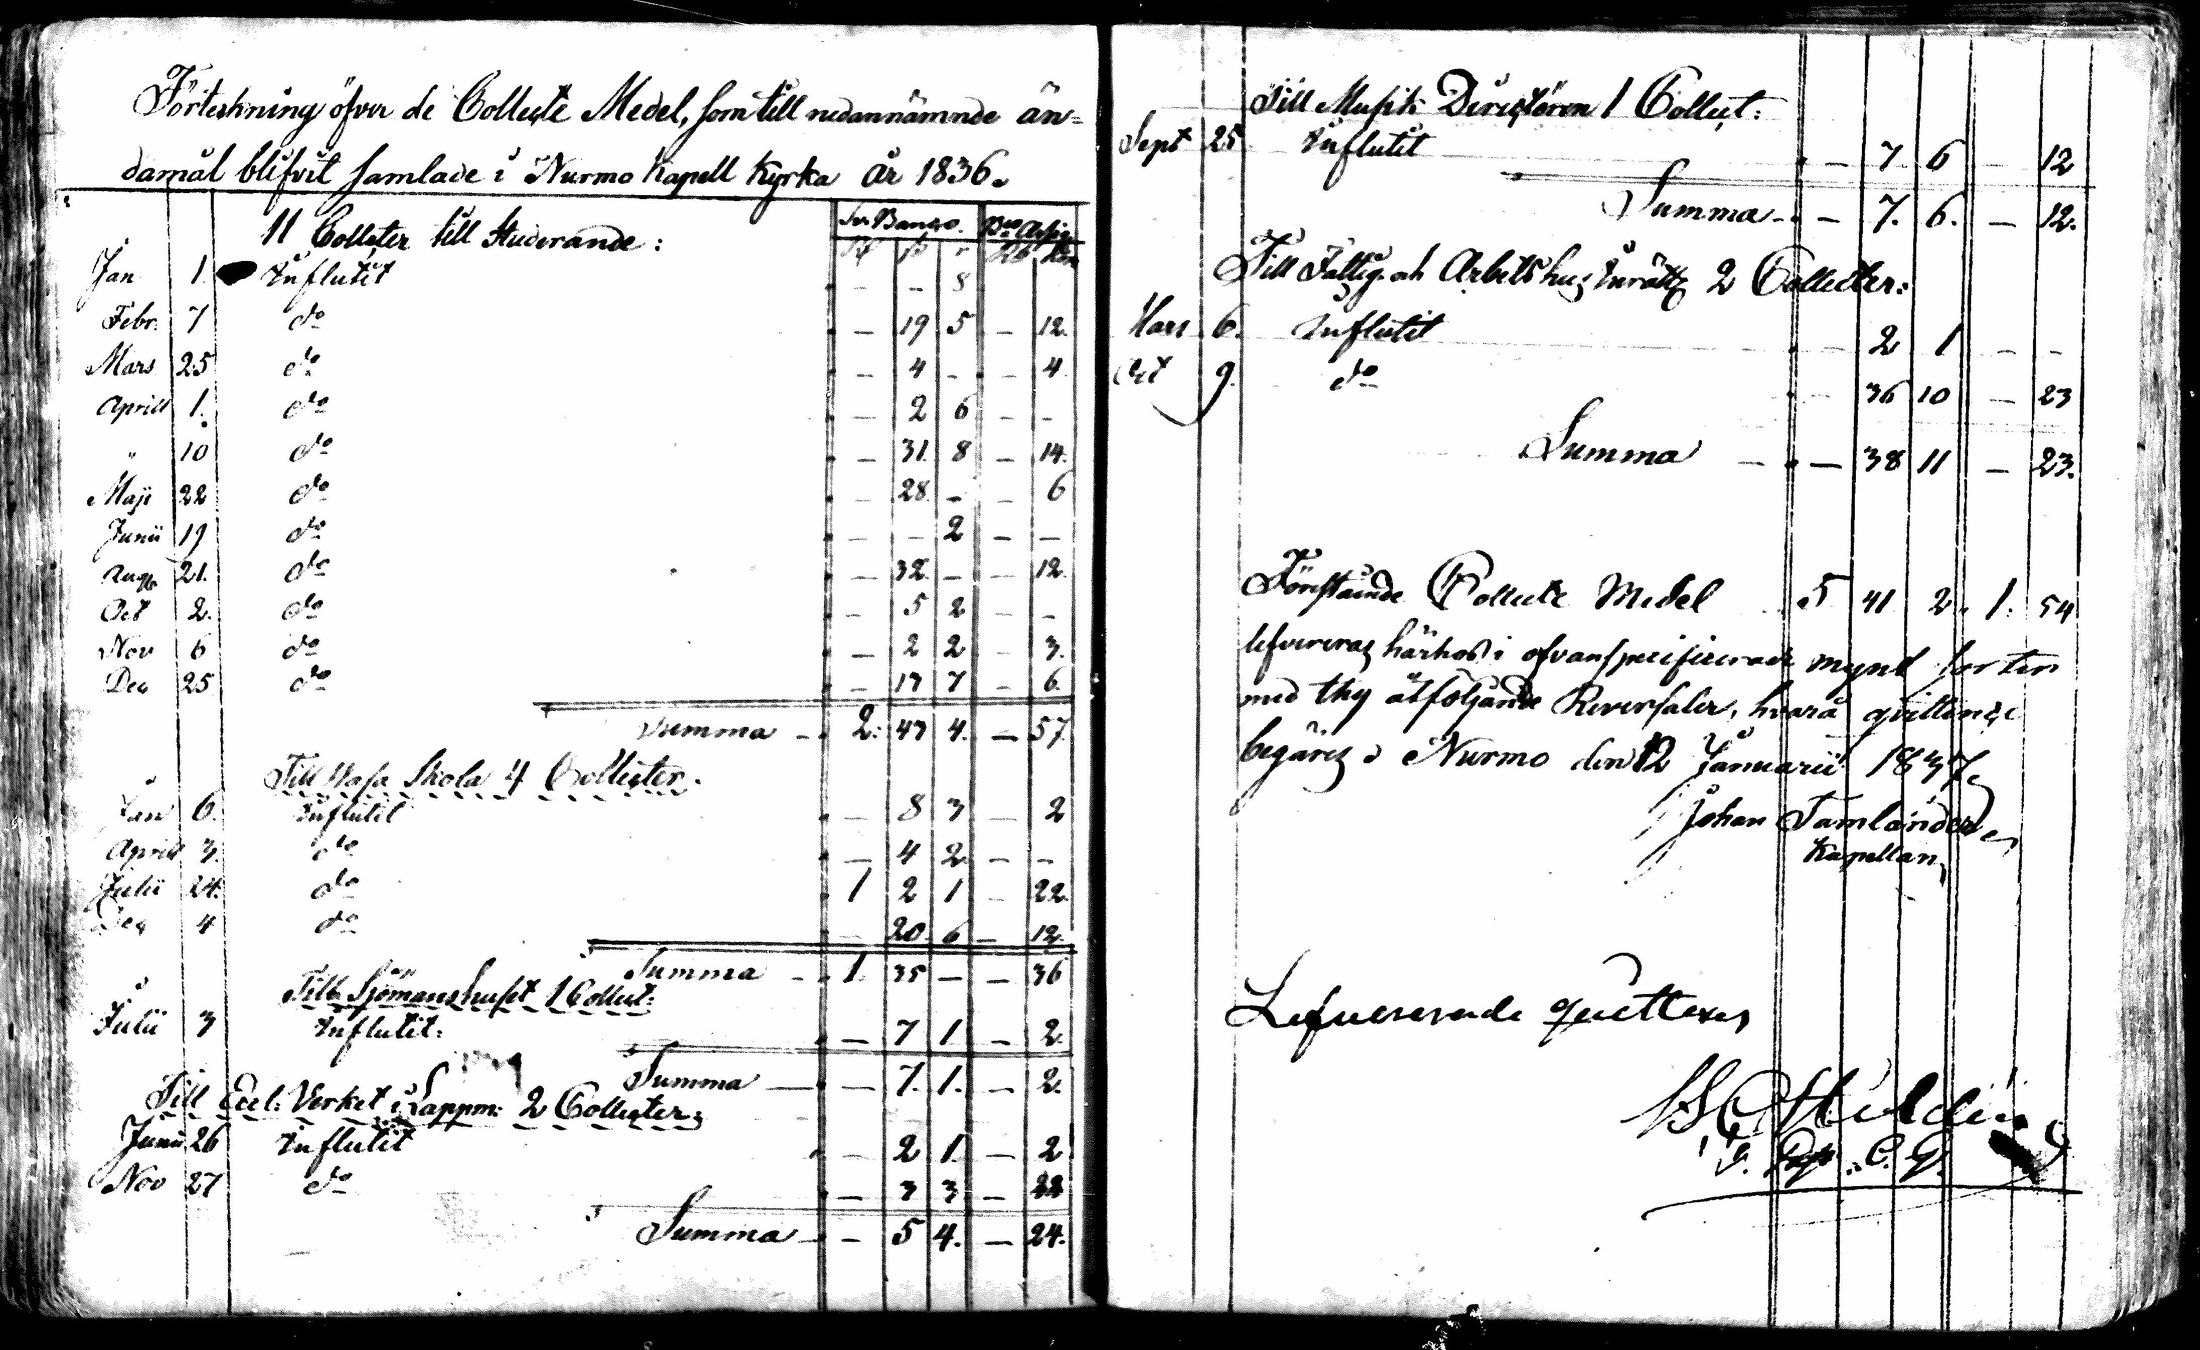 Förteckning öfver de Collecte Medel, som till nedannämnde än=
damål blifvit samlade i Nurmo Kapell Kyrka år 1836.
Sv. Banco. Bco Assig.
11 Collecter till Studerande:
Jan 1. Influtit - - 8
Febr. 7 do - 19 5 - 12.
Mars 25 do - 4 - - 4.
Aprill 1. do - 2 6 - -
" 10 do - 31. 8 - 14.
Maji 22 do - 28. - - 6
Junii 19 do - - 2 - -
Aug. 21. do - 32. - - 12.
Oct 2. do - 5 2 - -
Nov 6 do - 2 2 - 3.
Dec 25 do - 17 7 - 6.
Summa - 2: 47 4. - 57.
Till Wasa Skola 4 Collecter.
Jan 6. Influtit - 8 3 - 2
Aprill 3. do - 4 2 - -
Julii 24. do 1 2 1 - 22.
Dec 4 do - 20. 6 - 12.
Summa - 1. 35 - - 36
Till Sjömanshuset 1 Collect:
Julii 3 Influtit: - 7 1. - 2.
Summa - - 7. 1. - 2.
Till Eccl: Verket i Lappm: 2 Collecter;
Junii 26 Influtit - 2 1 - 2
Nov 27 do - 3 3 - 22
Summa - - 5 4. - 24.
Till Musik Directören 1 Collect:
Sept 25 Influtit - 7 6 - 12
Summa - - 7. 6. - 12.
Till Fattig och Arbetshus Inrättn 2 Collecter:
Mars 6. Influtit - 2 1 - -
Oct 9. do - 36 10 - 23
Summa - - 38 11 - 23.
Förestående Collecte Medel 5 41 2. 1. 54
lefvereras härhos i ofvanspecificerade mynt sorter
med thy åtföljande Reversaler, hvarå qvittence
begäres i Nurmo den 12 Januarii 1837.
Johan Tamlander
Kapellan
Lefvererade quitteras